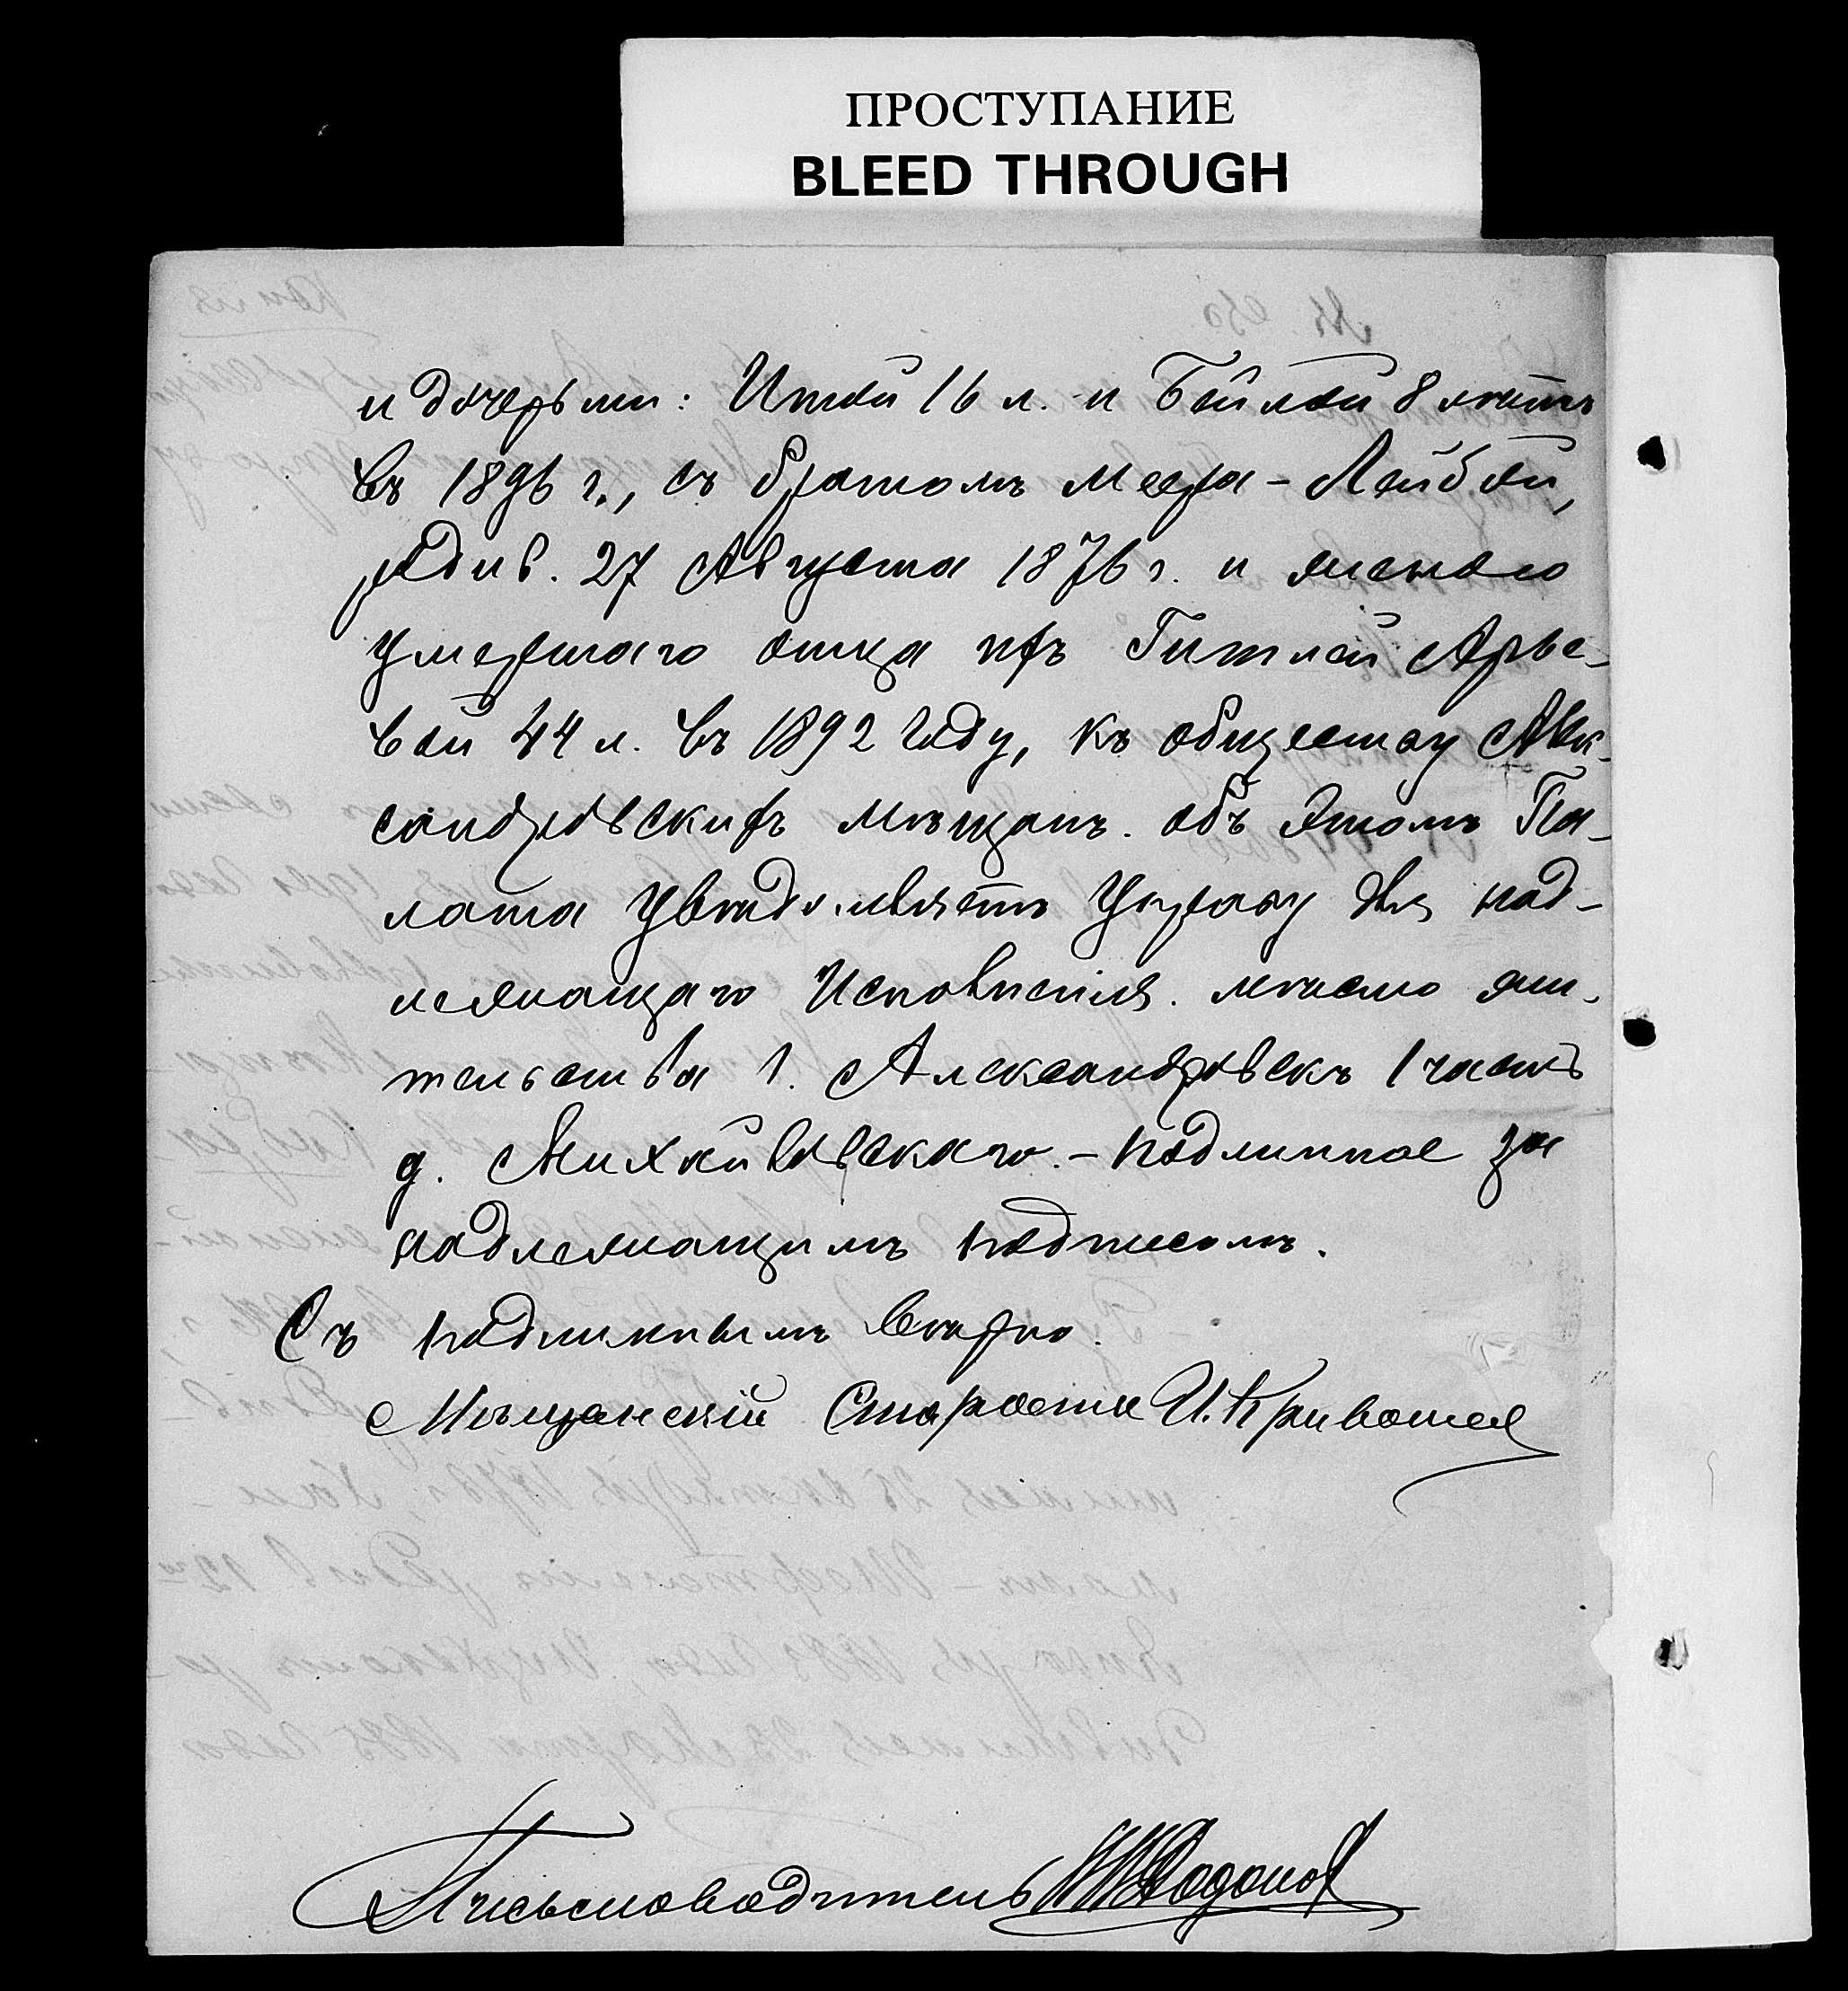 ПРОСТУПАНИЕ
BLEED THROUGH
и дочерьми: Иткой 16 л. и Бейлой 8 лѣтъ
въ 1896 г., съ братомъ Меера-Лейбой,
родив. 27 Августа 1876 г. и женою
умершаго отца ихъ Гитлей Арье-
вой 44 л. въ 1892 году, къ обществу Алек-
сандровскихъ мѣщанъ. Объ этомъ Па-
лата увѣдомляетъ Управу для над-
лежащаго исполненія. Мѣсто жи-
тельства г. Александровскъ 1 часть
д. Михайловскаго. - Подлинное за
надлежащимъ подписомъ.
Съ подлиннымъ вѣрно.
Мѣщанскій Староста И. Кривошея
Письмоводитель Додонов